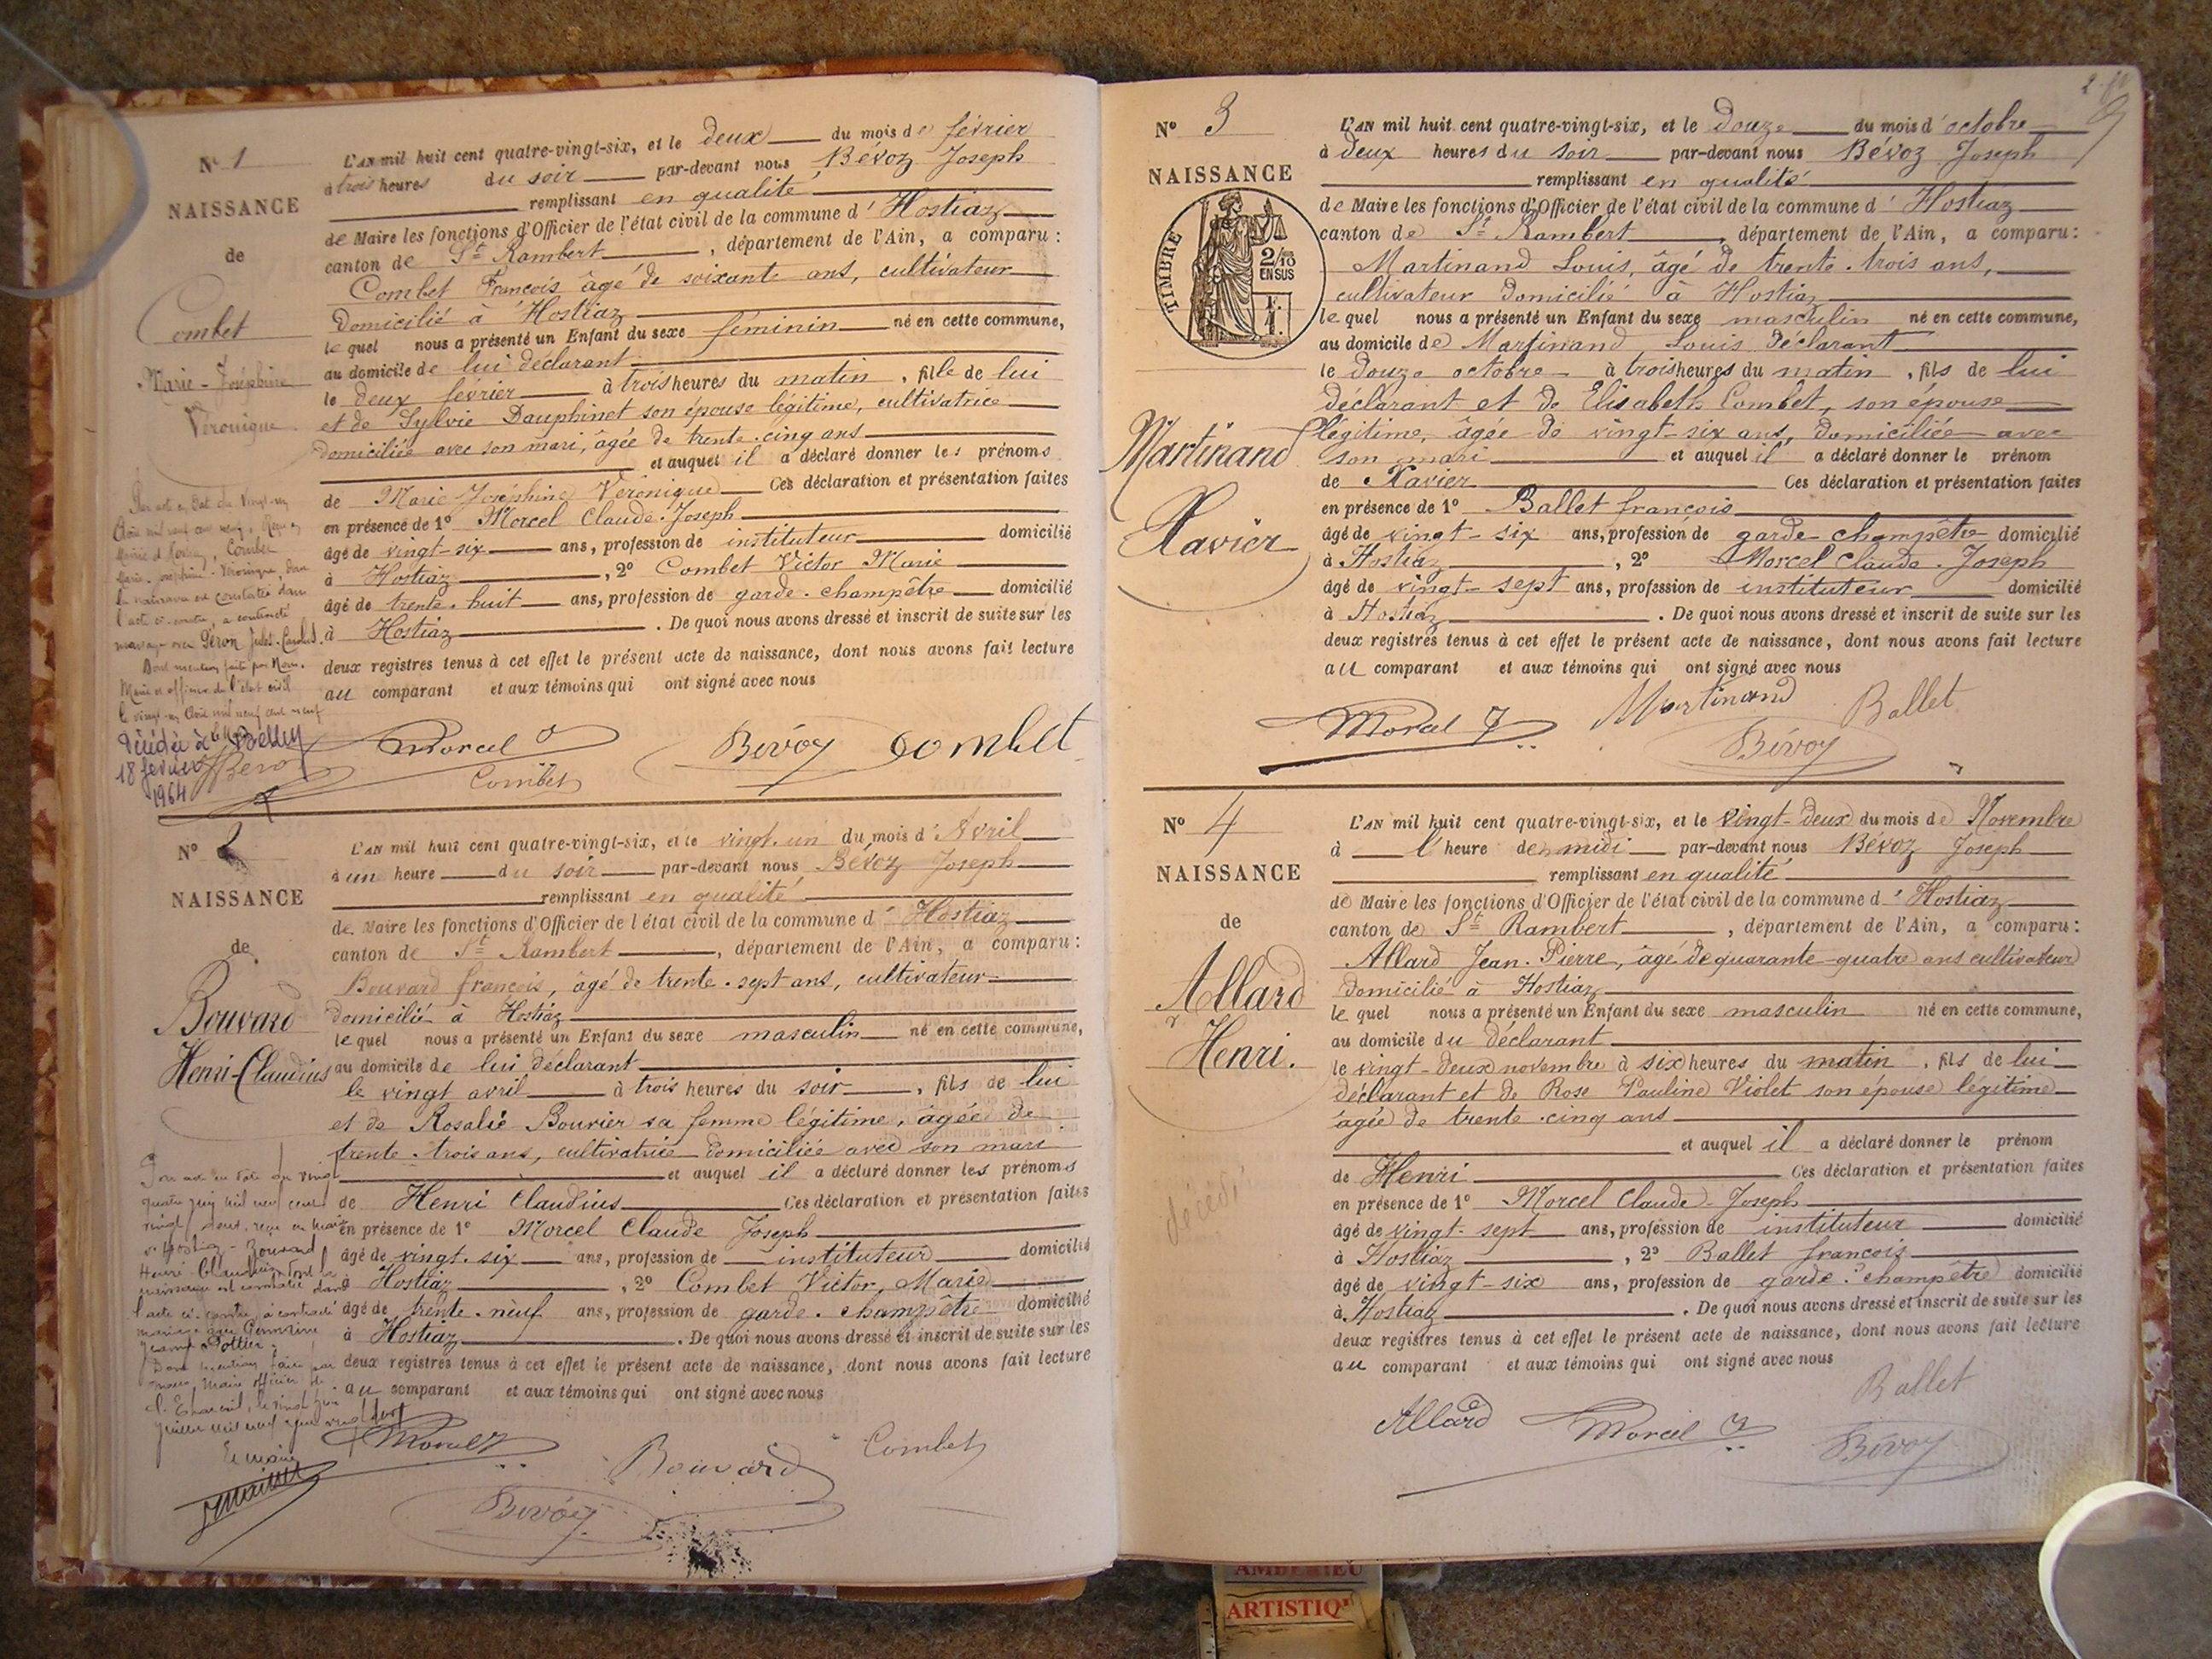 N° 1
NAISSANCE
de
Combet
Marie-Joséphine
Véronique
L'AN mil huit cent quatre-vingt-six, et le deux du mois de février
à trois heures du soir par-devant nous Bévoz Joseph
remplissant en qualité
de Maire les fonctions d'Officier de l'état civil de la commune d'Hostiaz
canton de St Rambert, département de l'Ain, a comparu :
Combet François âgé de soixante ans, cultivateur
domicilié à Hostiaz
lequel nous a présenté un Enfant du sexe féminin né en cette commune,
au domicile de lui déclarant
le deux février à trois heures du matin, fille de lui
et de Sylvie Dauphinet son épouse légitime, cultivatrice
domiciliée avec son mari, âgée de trente-cinq ans
et auquel il a déclaré donner les prénoms
de Marie Joséphine Véronique Ces déclaration et présentation faites
en présence de 1° Morcel Claude-Joseph
âgé de vingt-six ans, profession de instituteur domicilié
à Hostiaz, 2° Combet Victor Marie
âgé de trente-huit ans, profession de garde-champêtre domicilié
à Hostiaz. De quoi nous avons dressé et inscrit de suite sur les
deux registres tenus à cet effet le présent acte de naissance, dont nous avons fait lecture
au comparant et aux témoins qui ont signé avec nous
Par acte en date du vingt-un
Avril mil neuf cent neuf, Reçu en
Mairie d'Hostiaz, Combet
Marie-Joséphine-Véronique, dont
la naissance est constatée dans
l'acte ci-contre, a contracté
mariage avec Péron Jules
Dont mention faite par Nous
Maire et officier de l'état civil
le vingt-un Avril mil neuf cent neuf
Décédée à Belley
18 février
1964
Morcel J Bévoz Combet
Combet
N° 2
NAISSANCE
de
Bouvard
Henri-Claudius
L'AN mil huit cent quatre-vingt-six, et le vingt-un du mois d'Avril
à un heure du soir par-devant nous Bévoz Joseph
remplissant en qualité
de Maire les fonctions d'Officier de l'état civil de la commune d'Hostiaz
canton de St Rambert, département de l'Ain, a comparu :
Bouvard françois, âgé de trente-sept ans, cultivateur
domicilié à Hostiaz
lequel nous a présenté un Enfant du sexe masculin né en cette commune,
au domicile de lui déclarant
le vingt avril à trois heures du soir, fils de lui
et de Rosalie Bouvier sa femme légitime, âgée de
trente-trois ans, cultivatrice domiciliée avec son mari
et auquel il a déclaré donner les prénoms
de Henri Claudius Ces déclaration et présentation faites
en présence de 1° Morcel Claude Joseph
âgé de vingt-six ans, profession de instituteur domicilié
à Hostiaz, 2° Combet Victor, Marie
âgé de trente-neuf ans, profession de garde-champêtre domicilié
à Hostiaz. De quoi nous avons dressé et inscrit de suite sur les
deux registres tenus à cet effet le présent acte de naissance, dont nous avons fait lecture
au comparant et aux témoins qui ont signé avec nous
Par acte en date du vingt
quatre juin mil neuf cent
vingt deux, reçu en Mairie
d'Hostiaz - Bouvard
Henri Claudius dont la
naissance est constatée dans
l'acte ci-contre, a contracté
mariage avec Germaine
Jeanne Pottier.
Dont mention faite par
nous, Maire officier de
Le Maire
Morcel J Bouvard Combet
Bévoz
N° 3
NAISSANCE
TIMBRE
2/10
EN SUS
Martinand
Xavier
L'AN mil huit cent quatre-vingt-six, et le douze du mois d'octobre
à deux heures du soir par-devant nous Bévoz Joseph
remplissant en qualité
de Maire les fonctions d'Officier de l'état civil de la commune d'Hostiaz
canton de St Rambert, département de l'Ain, a comparu :
Martinand Louis, âgé de trente-trois ans,
cultivateur domicilié à Hostiaz
lequel nous a présenté un Enfant du sexe masculin né en cette commune,
au domicile de Martinand Louis déclarant
le douze octobre à trois heures du matin, fils de lui
déclarant et de Elisabeth Combet, son épouse
légitime, âgée de vingt-six ans, domiciliée avec
son mari et auquel il a déclaré donner le prénom
de Xavier Ces déclaration et présentation faites
en présence de 1° Ballet françois
âgé de vingt-six ans, profession de garde champêtre domicilié
à Hostiaz, 2° Morcel Claude-Joseph
âgé de vingt-sept ans, profession de instituteur domicilié
à Hostiaz. De quoi nous avons dressé et inscrit de suite sur les
deux registres tenus à cet effet le présent acte de naissance, dont nous avons fait lecture
au comparant et aux témoins qui ont signé avec nous
Morcel J Martinand Ballet
Bévoz
N° 4
NAISSANCE
de
Allard
Henri.
décédé
L'AN mil huit cent quatre-vingt-six, et le vingt-deux du mois de Novembre
à l'heure de midi par-devant nous Bévoz Joseph
remplissant en qualité
de Maire les fonctions d'Officier de l'état civil de la commune d'Hostiaz
canton de St Rambert, département de l'Ain, a comparu :
Allard Jean-Pierre, âgé de quarante-quatre ans cultivateur
domicilié à Hostiaz
lequel nous a présenté un Enfant du sexe masculin né en cette commune,
au domicile du déclarant
le vingt-deux novembre à six heures du matin, fils de lui
déclarant et de Rose Pauline Violet son épouse légitime
âgée de trente-cinq ans
et auquel il a déclaré donner le prénom
de Henri Ces déclaration et présentation faites
en présence de 1° Morcel Claude-Joseph
âgé de vingt-sept ans, profession de instituteur domicilié
à Hostiaz, 2° Ballet françois
âgé de vingt-six ans, profession de garde-champêtre domicilié
à Hostiaz. De quoi nous avons dressé et inscrit de suite sur les
deux registres tenus à cet effet le présent acte de naissance, dont nous avons fait lecture
au comparant et aux témoins qui ont signé avec nous
Ballet
Allard Morcel J Bévoz
AMBERIEU
ARTISTIQ